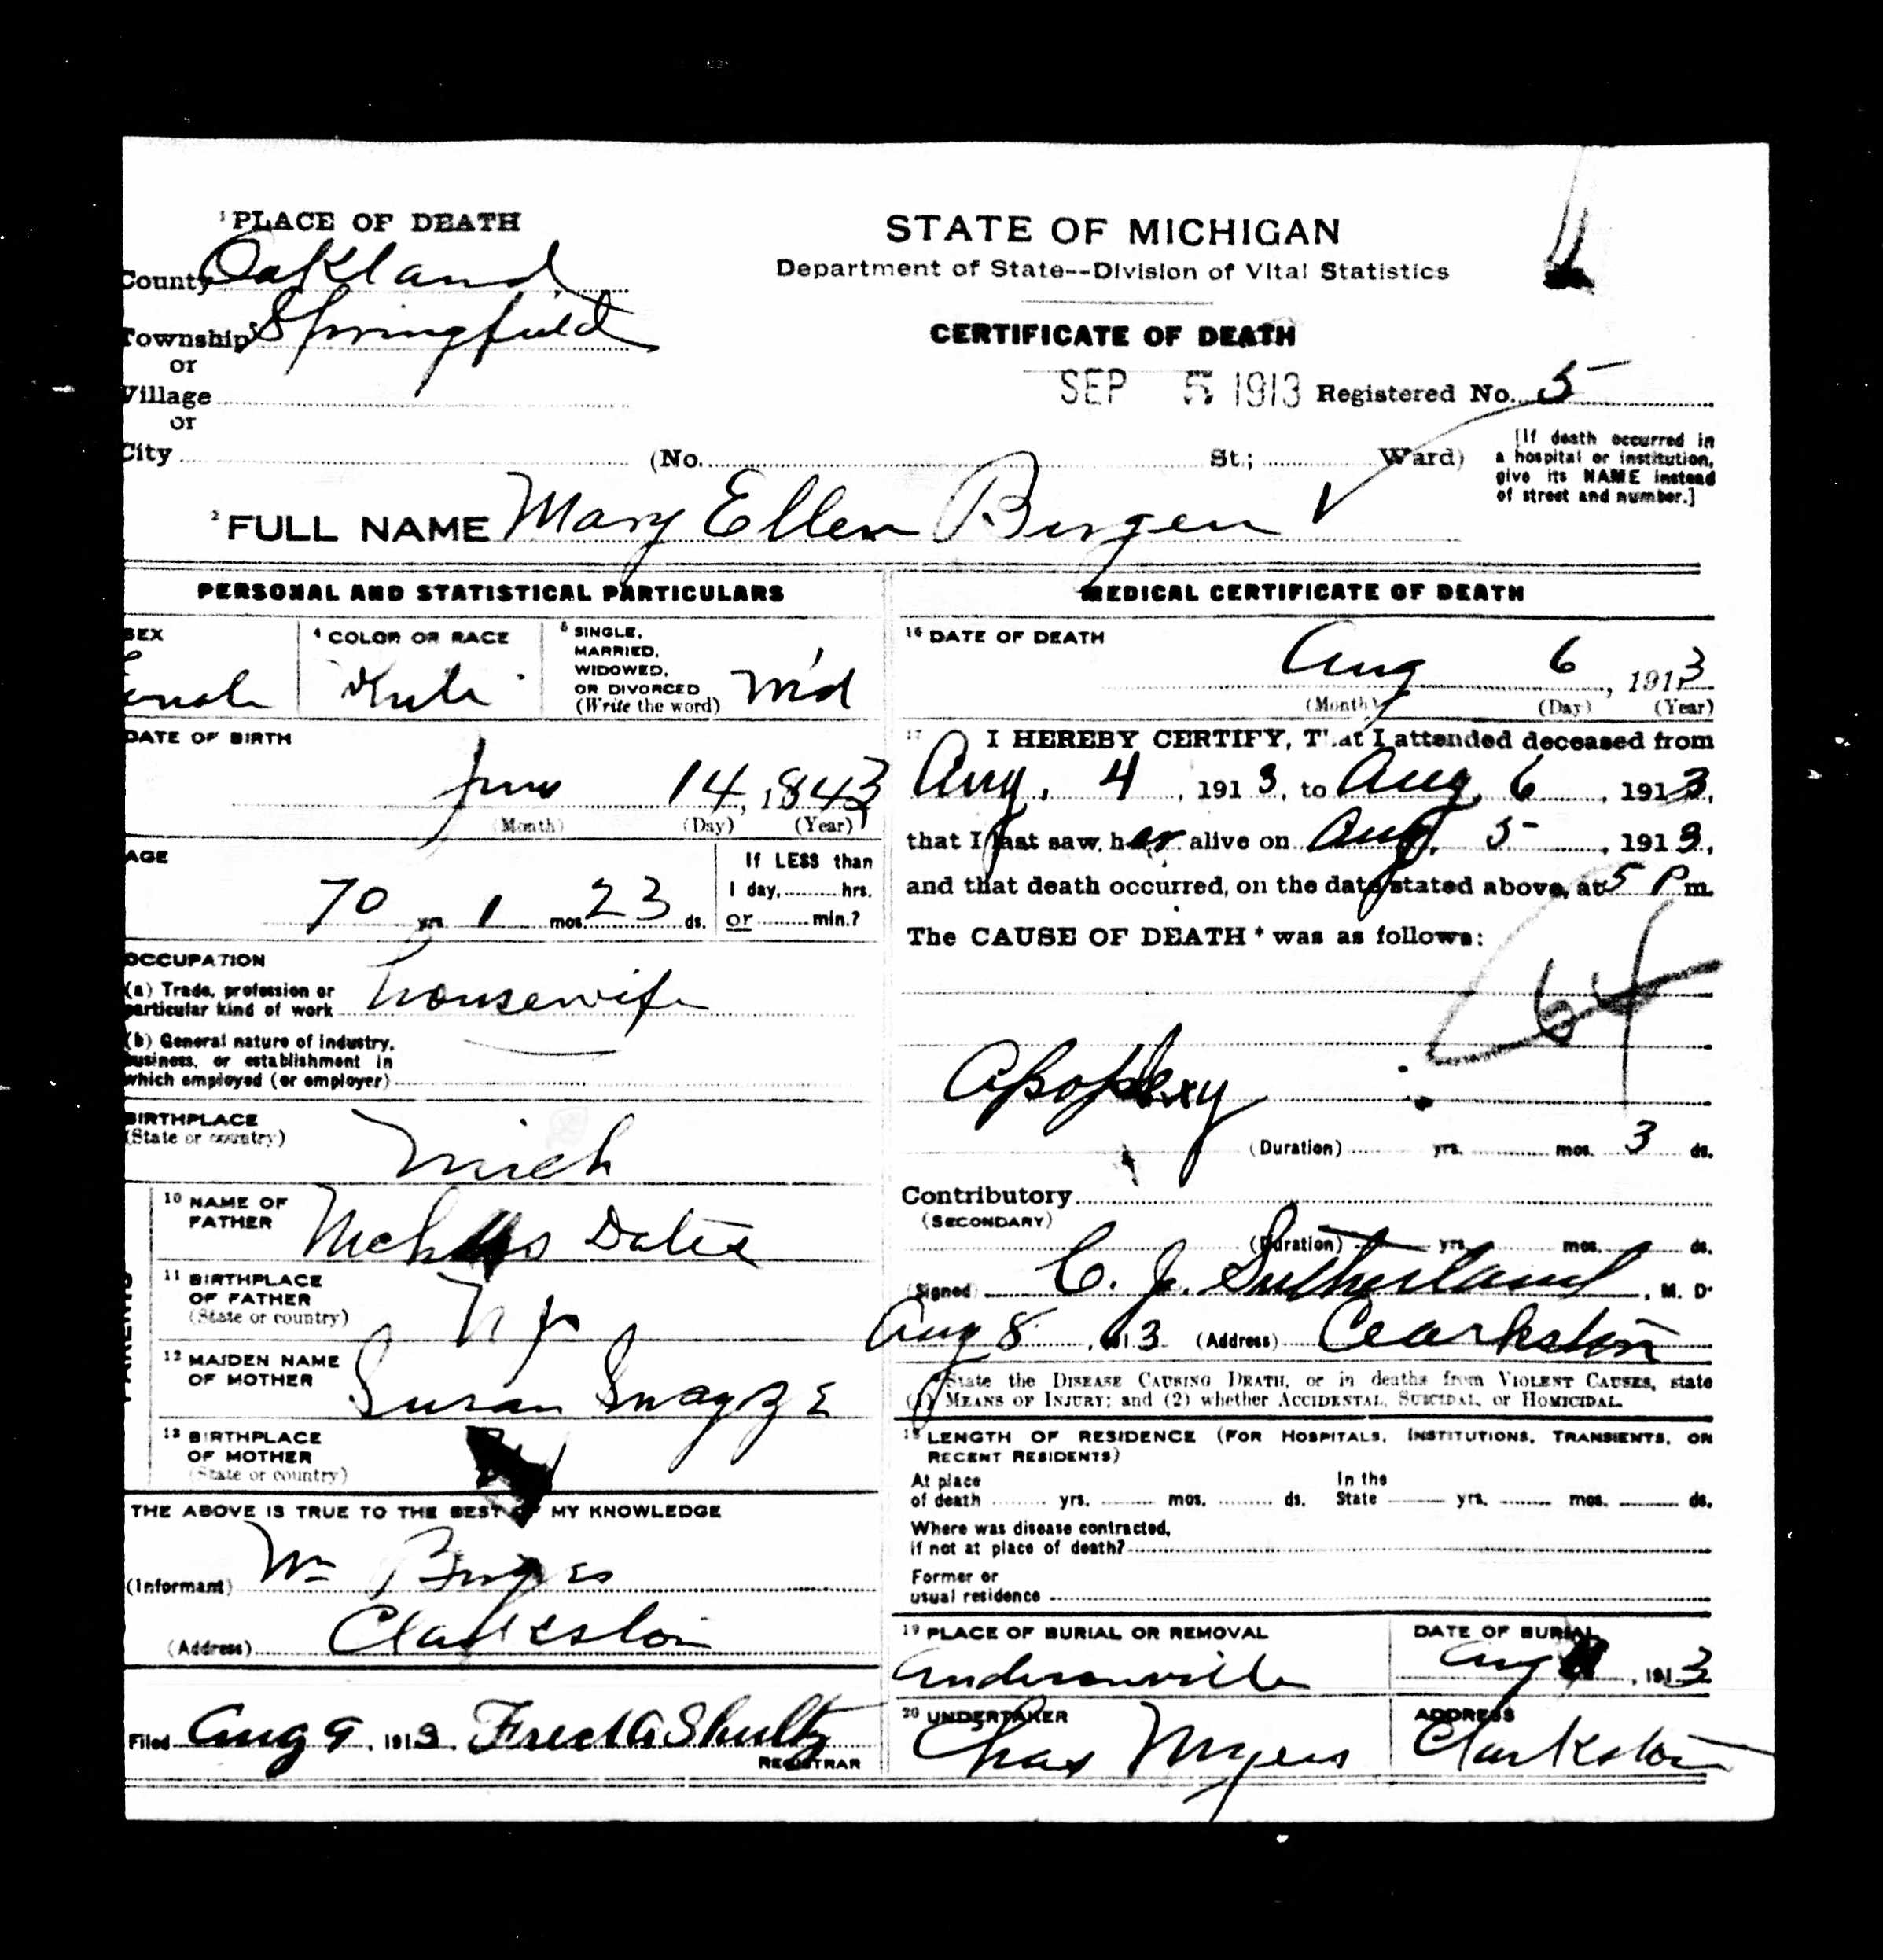 1 PLACE OF DEATH
County Oakland
Township Springfield
or
Village
or
City (No. St.; Ward)
STATE OF MICHIGAN
Department of State--Division of Vital Statistics
CERTIFICATE OF DEATH
SEP 5 1913 Registered No. 5
[If death occurred in
a hospital or institution,
give its NAME instead
of street and number.]
2 FULL NAME Mary Ellen Burgen
PERSONAL AND STATISTICAL PARTICULARS
SEX
Female
4 COLOR OR RACE
5 SINGLE,
MARRIED,
WIDOWED,
OR DIVORCED
(Write the word)
DATE OF BIRTH
June 14, 1843
(Month) (Day) (Year)
AGE
70 yrs. 1 mos. 23 ds.
If LESS than
1 day, hrs.
or min.?
OCCUPATION
(a) Trade, profession or
particular kind of work housewife
(b) General nature of industry,
business, or establishment in
which employed (or employer)
BIRTHPLACE
(State or country)
Mich
PARENTS
10 NAME OF
FATHER
11 BIRTHPLACE
OF FATHER
(State or country)
12 MAIDEN NAME
OF MOTHER Susan
13 BIRTHPLACE
OF MOTHER
(State or country)
THE ABOVE IS TRUE TO THE BEST OF MY KNOWLEDGE
(Informant) Wm
(Address) Clarkston
Filed Aug 9, 1913. Fred A Shultz
REGISTRAR
MEDICAL CERTIFICATE OF DEATH
16 DATE OF DEATH
Aug 6, 1913
(Month) (Day) (Year)
17 I HEREBY CERTIFY, That I attended deceased from
Aug. 4, 1913, to Aug. 6, 1913,
that I last saw her alive on Aug. 5, 1913,
and that death occurred, on the date stated above, at 5 P m.
The CAUSE OF DEATH* was as follows:
64
Apoplexy
(Duration) yrs. mos. 3 ds.
Contributory
(SECONDARY)
(Duration) yrs. mos. ds.
(Signed) C. J. Sutherland, M. D.
Aug 8, 1913 (Address) Clarkston
State the DISEASE CAUSING DEATH, or in deaths from VIOLENT CAUSES, state
(1) MEANS OF INJURY; and (2) whether ACCIDENTAL, SUICIDAL, or HOMICIDAL.
18 LENGTH OF RESIDENCE (FOR HOSPITALS, INSTITUTIONS, TRANSIENTS, OR
RECENT RESIDENTS)
At place
of death yrs. mos. ds.
In the
State yrs. mos. ds.
Where was disease contracted,
if not at place of death?
Former or
usual residence
19 PLACE OF BURIAL OR REMOVAL
Andersonville
DATE OF BURIAL
Aug, 1913
20 UNDERTAKER
Chas Myers
ADDRESS
Clarkston